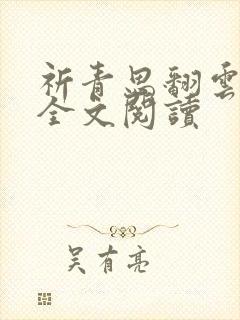 祈青思翻雲
全文閱讀
吴有亮